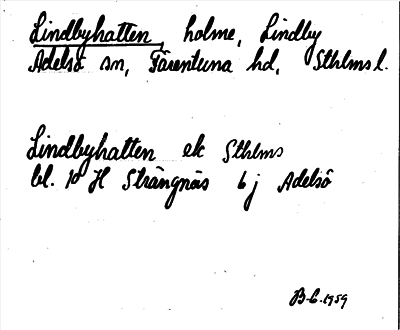 Lindbyhatten, holme, Lindby
Adelsö sn, Färentuna hd, Sthlms l.
Lindbyhatten ek Sthlms
bl. 10 H Strängnäs 6 j Adelsö
B-C. 1959